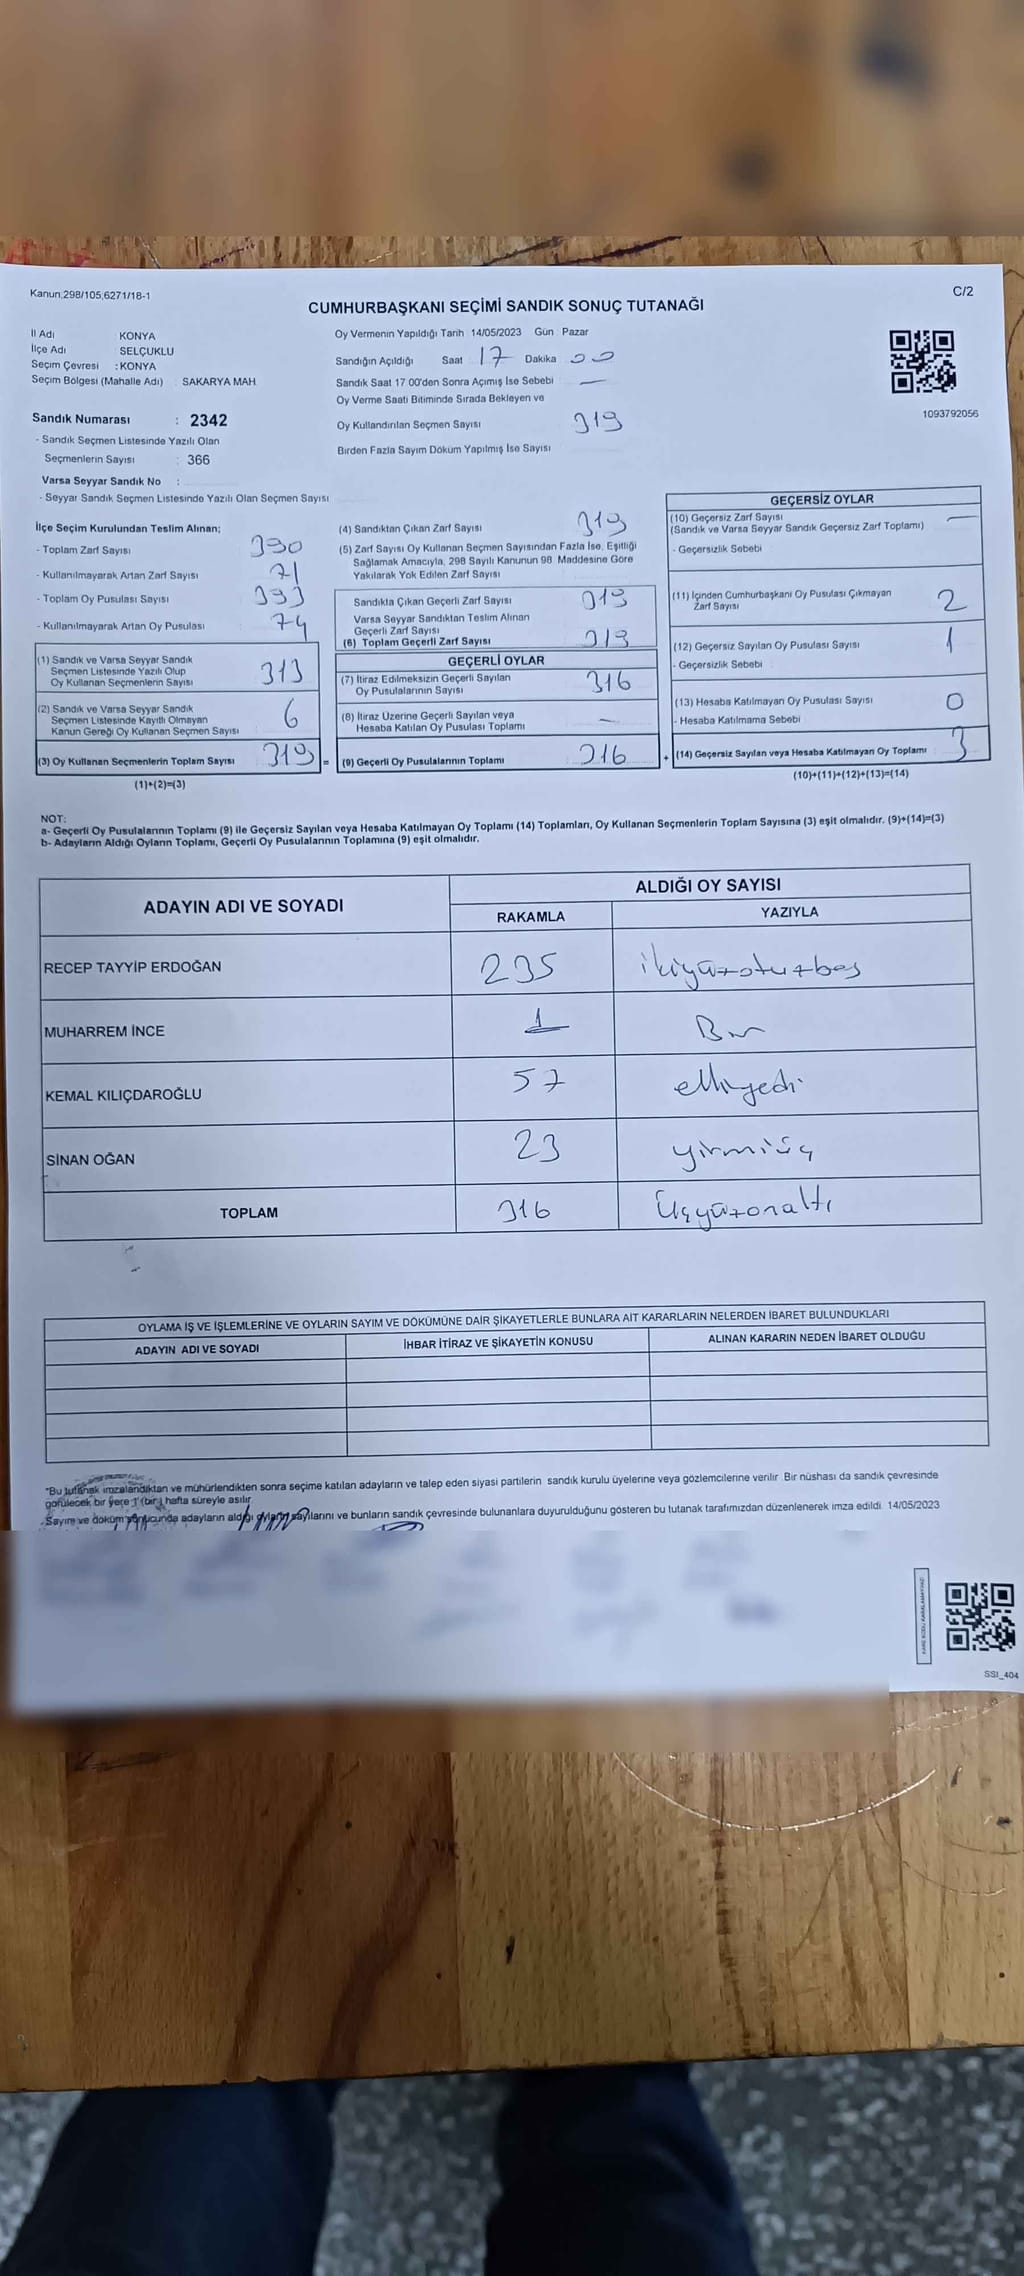 Kanun;298/105;6271/18-1
C/2
CUMHURBAŞKANI SEÇİMİ SANDIK SONUÇ TUTANAĞI
İl Adı KONYA
İlçe Adı SELÇUKLU
Seçim Çevresi : KONYA
Seçim Bölgesi (Mahalle Adı) SAKARYA MAH
Sandık Numarası : 2342
- Sandık Seçmen Listesinde Yazılı Olan
Seçmenlerin Sayısı : 366
Varsa Seyyar Sandık No :
- Seyyar Sandık Seçmen Listesinde Yazılı Olan Seçmen Sayısı
Oy Vermenin Yapıldığı Tarih 14/05/2023 Gün Pazar
Sandığın Açıldığı Saat 17 Dakika 00
Sandık Saat 17 00'den Sonra Açımış İse Sebebi —
Oy Verme Saati Bitiminde Sırada Bekleyen ve
Oy Kullandırılan Seçmen Sayısı 319
Birden Fazla Sayım Döküm Yapılmış İse Sayısı
1093792056
İlçe Seçim Kurulundan Teslim Alınan;
- Toplam Zarf Sayısı 390
- Kullanılmayarak Artan Zarf Sayısı 71
- Toplam Oy Pusulası Sayısı 393
- Kullanılmayarak Artan Oy Pusulası 74
(1) Sandık ve Varsa Seyyar Sandık
Seçmen Listesinde Yazılı Olup
Oy Kullanan Seçmenlerin Sayısı 313
(2) Sandık ve Varsa Seyyar Sandık
Seçmen Listesinde Kayıtlı Olmayan
Kanun Gereği Oy Kullanan Seçmen Sayısı 6
(3) Oy Kullanan Seçmenlerin Toplam Sayısı 319 =
(1)+(2)=(3)
(4) Sandıktan Çıkan Zarf Sayısı 319
(5) Zarf Sayısı Oy Kullanan Seçmen Sayısından Fazla İse, Eşitliği
Sağlamak Amacıyla, 298 Sayılı Kanunun 98. Maddesine Göre
Yakılarak Yok Edilen Zarf Sayısı
Sandıkta Çıkan Geçerli Zarf Sayısı 319
Varsa Seyyar Sandıktan Teslim Alınan
Geçerli Zarf Sayısı
(6) Toplam Geçerli Zarf Sayısı 319
GEÇERLİ OYLAR
(7) İtiraz Edilmeksizin Geçerli Sayılan
Oy Pusulalarının Sayısı 316
(8) İtiraz Üzerine Geçerli Sayılan veya
Hesaba Katılan Oy Pusulası Toplamı —
(9) Geçerli Oy Pusulalarının Toplamı 316 +
GEÇERSİZ OYLAR
(10) Geçersiz Zarf Sayısı —
(Sandık ve Varsa Seyyar Sandık Geçersiz Zarf Toplamı)
- Geçersizlik Sebebi
(11) İçinden Cumhurbaşkanı Oy Pusulası Çıkmayan
Zarf Sayısı 2
(12) Geçersiz Sayılan Oy Pusulası Sayısı 1
- Geçersizlik Sebebi
(13) Hesaba Katılmayan Oy Pusulası Sayısı 0
- Hesaba Katılmama Sebebi
(14) Geçersiz Sayılan veya Hesaba Katılmayan Oy Toplamı 3
(10)+(11)+(12)+(13)=(14)
NOT:
a- Geçerli Oy Pusulalarının Toplamı (9) ile Geçersiz Sayılan veya Hesaba Katılmayan Oy Toplamı (14) Toplamları, Oy Kullanan Seçmenlerin Toplam Sayısına (3) eşit olmalıdır. (9)+(14)=(3)
b- Adayların Aldığı Oyların Toplamı, Geçerli Oy Pusulalarının Toplamına (9) eşit olmalıdır.
ADAYIN ADI VE SOYADI
ALDIĞI OY SAYISI
RAKAMLA YAZIYLA
RECEP TAYYİP ERDOĞAN 235 ikiyüzotuzbeş
MUHARREM İNCE 1 Bir
KEMAL KILIÇDAROĞLU 57 elliyedi
SİNAN OĞAN 23 yirmiüç
TOPLAM 316 Üçyüzonaltı
OYLAMA İŞ VE İŞLEMLERİNE VE OYLARIN SAYIM VE DÖKÜMÜNE DAİR ŞİKAYETLERLE BUNLARA AİT KARARLARIN NELERDEN İBARET BULUNDUKLARI
ADAYIN ADI VE SOYADI İHBAR İTİRAZ VE ŞİKAYETİN KONUSU ALINAN KARARIN NEDEN İBARET OLDUĞU
"Bu tutanak imzalandıktan ve mühürlendikten sonra seçime katılan adayların ve talep eden siyasi partilerin sandık kurulu üyelerine veya gözlemcilerine verilir. Bir nüshası da sandık çevresinde
görülecek bir yere 1 (bir) hafta süreyle asılır.
- Sayım ve döküm sonucunda adayların aldığı oyların sayılarını ve bunların sandık çevresinde bulunanlara duyurulduğunu gösteren bu tutanak tarafımızdan düzenlenerek imza edildi. 14/05/2023
SSI_404